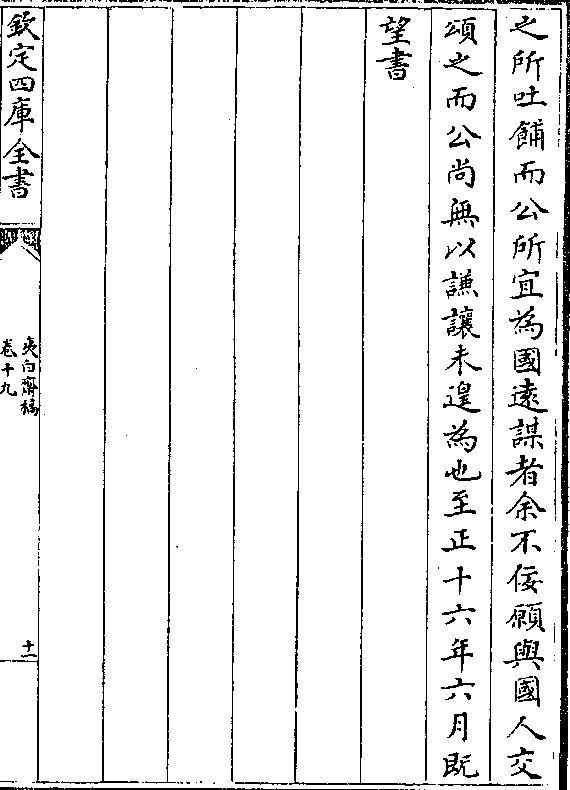 之所吐餔而公所宜為國遠謀者余不佞願與國人交
頌之而公尚無以謙讓未遑為也至正十六年六月既
望書
欽定四庫全書
夷白齋稿
卷十九
十一